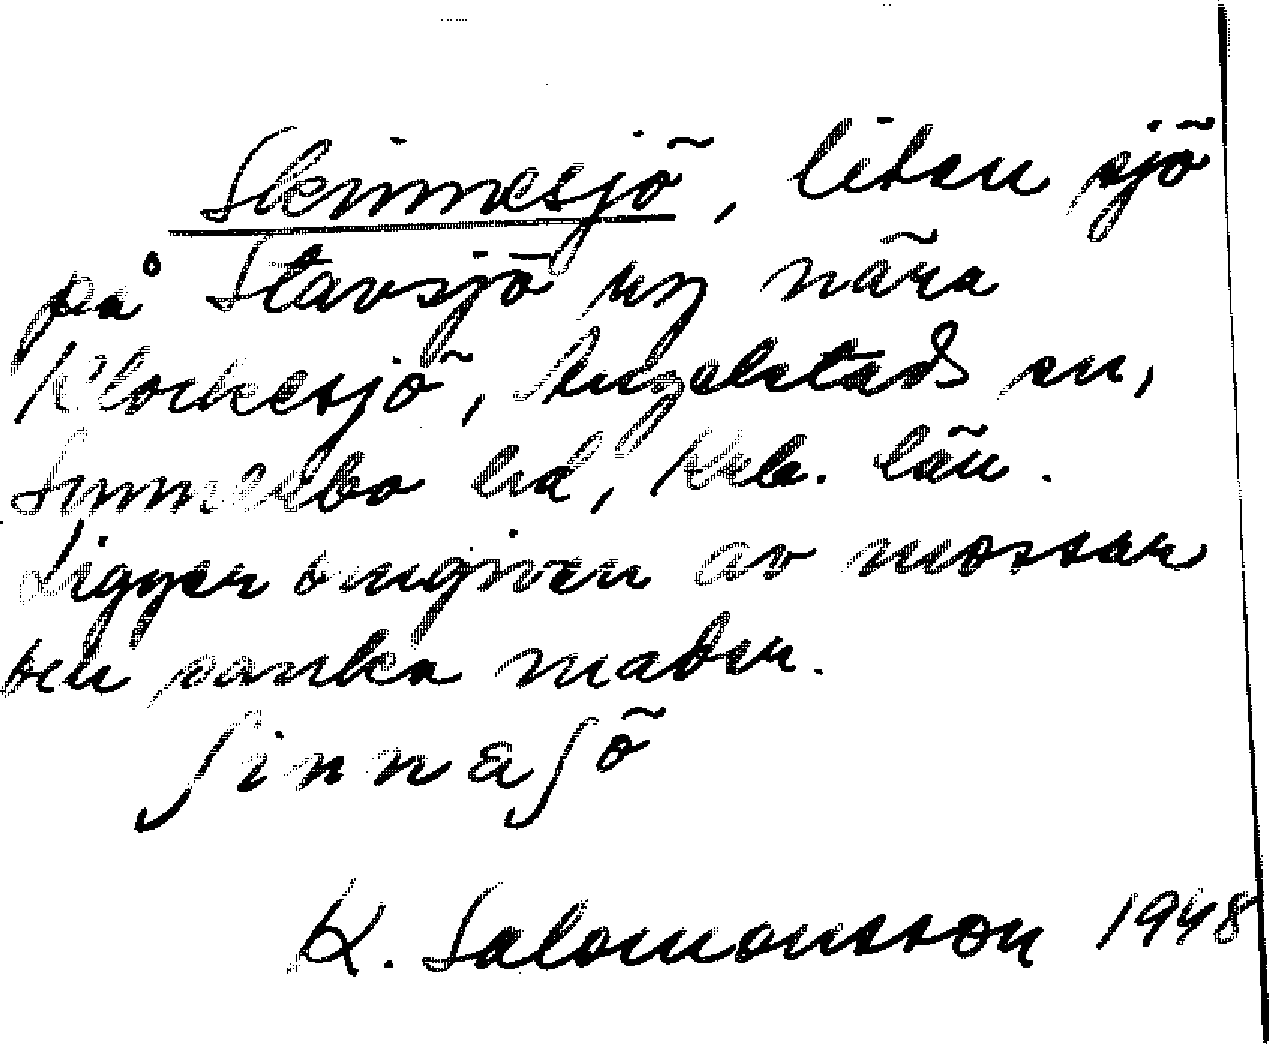 Skinnesjö, liten sjö
på Stavsjö nära
Klockesjö, Angelstads sn,
Sunnerbo hd, Krb. län.
Ligger omgiven av mossar
och sanka mader.
ʃinnaʃö
K. Salomonsson 1948